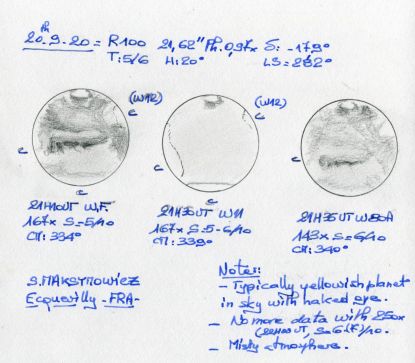 20.9.20 = R100 21,62" Ph.0,97x S: -17.9°
T:5/6 H:20° LS=282°
(W12)
(W12)
c
c
c
c
c
21H10UT W.F.
167x S=5/10
CM:334°
21H30UT W11
167x S=5-6/10
CM:339°
21H35UT W80A
143x S=6/10
CM:340°
S.MAKSYMOWICZ
Ecquevilly-FRA-
Notes:
- Typically yellowish planet
in sky with naked eye.
- No more data with 250x
- Misty atmosphere.